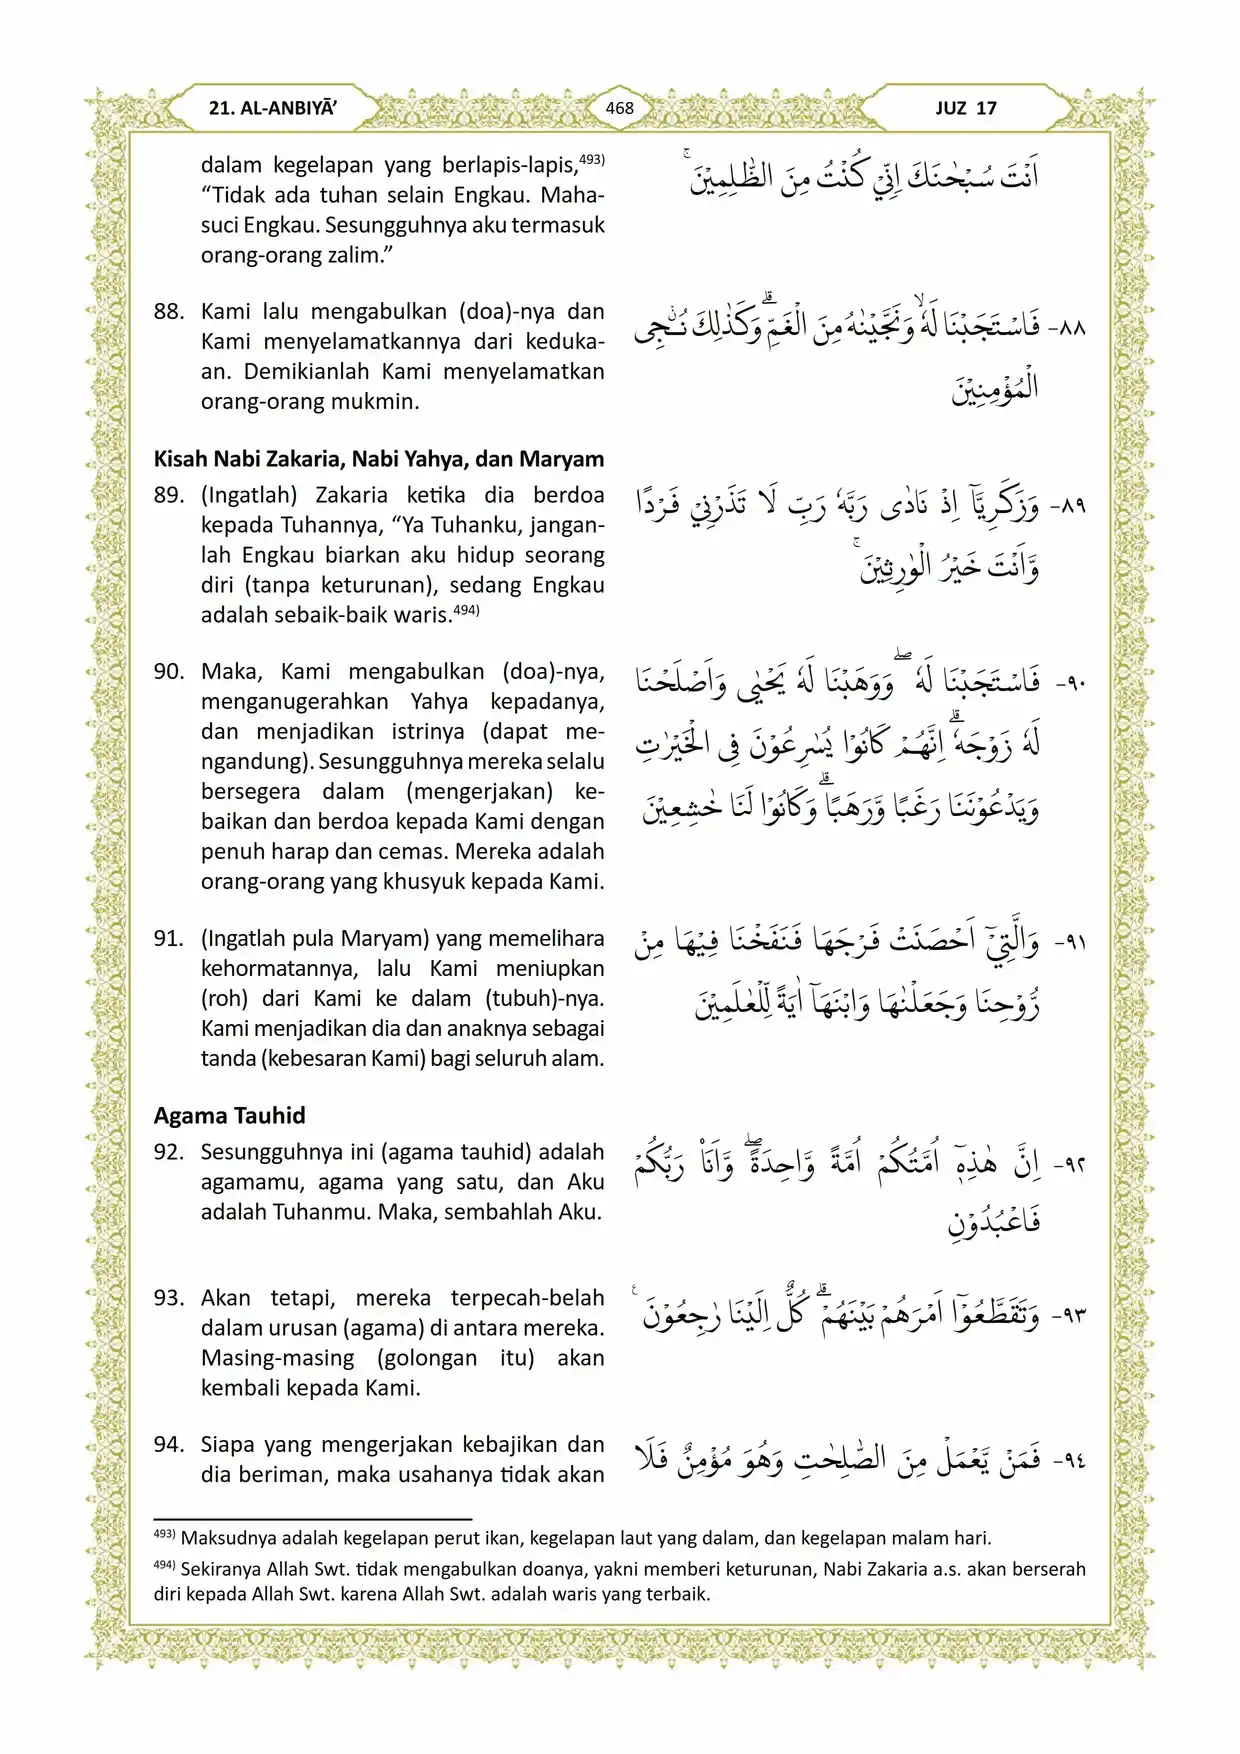 21. AL-ANBIYĀ’
468
JUZ 17
dalam kegelapan yang berlapis-lapis,493)
“Tidak ada tuhan selain Engkau. Maha-
suci Engkau. Sesungguhnya aku termasuk
orang-orang zalim.”
اَنْتَ سُبْحٰنَكَ اِنِّيْ كُنْتُ مِنَ الظّٰلِمِيْنَ ۚ
88. Kami lalu mengabulkan (doa)-nya dan
Kami menyelamatkannya dari keduka-
an. Demikianlah Kami menyelamatkan
orang-orang mukmin.
٨٨- فَاسْتَجَبْنَا لَهٗۙ وَنَجَّيْنٰهُ مِنَ الْغَمِّۗ وَكَذٰلِكَ نُـْۨجِى
الْمُؤْمِنِيْنَ
Kisah Nabi Zakaria, Nabi Yahya, dan Maryam
89. (Ingatlah) Zakaria ketika dia berdoa
kepada Tuhannya, “Ya Tuhanku, jangan-
lah Engkau biarkan aku hidup seorang
diri (tanpa keturunan), sedang Engkau
adalah sebaik-baik waris.494)
٨٩- وَزَكَرِيَّآ اِذْ نَادٰى رَبَّهٗ رَبِّ لَا تَذَرْنِيْ فَرْدًا
وَّاَنْتَ خَيْرُ الْوٰرِثِيْنَ ۚ
90. Maka, Kami mengabulkan (doa)-nya,
menganugerahkan Yahya kepadanya,
dan menjadikan istrinya (dapat me-
ngandung). Sesungguhnya mereka selalu
bersegera dalam (mengerjakan) ke-
baikan dan berdoa kepada Kami dengan
penuh harap dan cemas. Mereka adalah
orang-orang yang khusyuk kepada Kami.
٩٠- فَاسْتَجَبْنَا لَهٗ ۖ وَوَهَبْنَا لَهٗ يَحْيٰى وَاَصْلَحْنَا
لَهٗ زَوْجَهٗۗ اِنَّهُمْ كَانُوْا يُسٰرِعُوْنَ فِى الْخَيْرٰتِ
وَيَدْعُوْنَنَا رَغَبًا وَّرَهَبًاۗ وَكَانُوْا لَنَا خٰشِعِيْنَ
91. (Ingatlah pula Maryam) yang memelihara
kehormatannya, lalu Kami meniupkan
(roh) dari Kami ke dalam (tubuh)-nya.
Kami menjadikan dia dan anaknya sebagai
tanda (kebesaran Kami) bagi seluruh alam.
٩١- وَالَّتِيْٓ اَحْصَنَتْ فَرْجَهَا فَنَفَخْنَا فِيْهَا مِنْ
رُّوْحِنَا وَجَعَلْنٰهَا وَابْنَهَآ اٰيَةً لِّلْعٰلَمِيْنَ
Agama Tauhid
92. Sesungguhnya ini (agama tauhid) adalah
agamamu, agama yang satu, dan Aku
adalah Tuhanmu. Maka, sembahlah Aku.
٩٢- اِنَّ هٰذِهٖٓ اُمَّتُكُمْ اُمَّةً وَّاحِدَةًۖ وَّاَنَا۠ رَبُّكُمْ
فَاعْبُدُوْنِ
93. Akan tetapi, mereka terpecah-belah
dalam urusan (agama) di antara mereka.
Masing-masing (golongan itu) akan
kembali kepada Kami.
٩٣- وَتَقَطَّعُوْٓا اَمْرَهُمْ بَيْنَهُمْۗ كُلٌّ اِلَيْنَا رٰجِعُوْنَ ࣖ
94. Siapa yang mengerjakan kebajikan dan
dia beriman, maka usahanya tidak akan
٩٤- فَمَنْ يَّعْمَلْ مِنَ الصّٰلِحٰتِ وَهُوَ مُؤْمِنٌ فَلَا
493) Maksudnya adalah kegelapan perut ikan, kegelapan laut yang dalam, dan kegelapan malam hari.
494) Sekiranya Allah Swt. tidak mengabulkan doanya, yakni memberi keturunan, Nabi Zakaria a.s. akan berserah
diri kepada Allah Swt. karena Allah Swt. adalah waris yang terbaik.